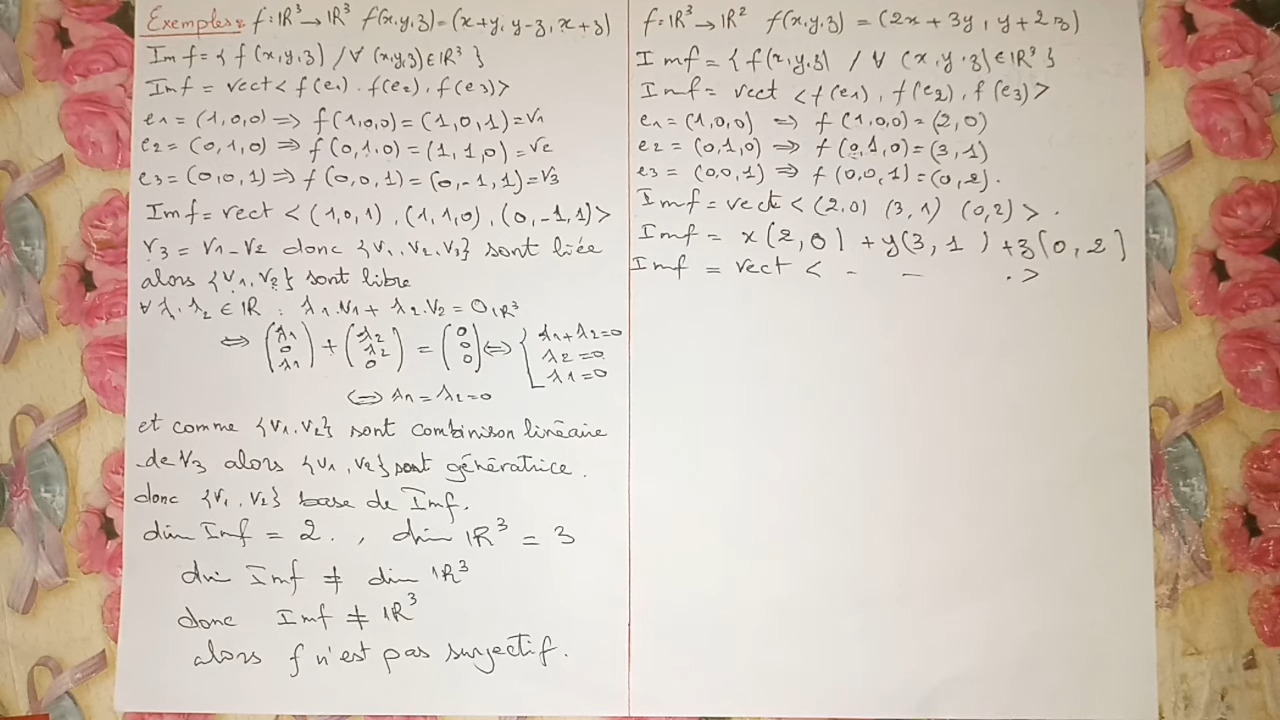 Exemples: f: IR³ → IR³ f(x,y,z) = (x+y, y-z, x+z)
Imf = { f(x,y,z) / ∀ (x,y,z) ∈ IR³ }
Imf = vect < f(e1), f(e2), f(e3) >
e1 = (1,0,0) ⇒ f(1,0,0) = (1,0,1) = v1
e2 = (0,1,0) ⇒ f(0,1,0) = (1,1,0) = v2
e3 = (0,0,1) ⇒ f(0,0,1) = (0,-1,1) = v3
Imf = vect < (1,0,1), (1,1,0), (0,-1,1) >
v3 = v1 - v2 donc {v1, v2, v3} sont liée
alors {v1, v2} sont libre
∀ λ1, λ2 ∈ IR : λ1.v1 + λ2.v2 = 0IR³
⇔ (λ1 0 λ1) + (λ2 λ2 0) = (0 0 0) ⇔ { λ1+λ2=0 λ2=0 λ1=0
⇔ λ1 = λ2 = 0
et comme {v1, v2} sont combinison linéaire
de v3 alors {v1, v2} sont génératrice.
donc {v1, v2} base de Imf.
dim Imf = 2. , dim IR³ = 3
dim Imf ≠ dim IR³
donc Imf ≠ IR³
alors f n'est pas surjectif.
f: IR³ → IR² f(x,y,z) = (2x+3y, y+2z)
Imf = { f(x,y,z) / ∀ (x,y,z) ∈ IR³ }
Imf = vect < f(e1), f(e2), f(e3) >
e1 = (1,0,0) ⇒ f(1,0,0) = (2,0)
e2 = (0,1,0) ⇒ f(0,1,0) = (3,1)
e3 = (0,0,1) ⇒ f(0,0,1) = (0,2).
Imf = vect < (2,0) (3,1) (0,2) > .
Imf = x(2,0) + y(3,1) + z(0,2)
Imf = vect < - - . >